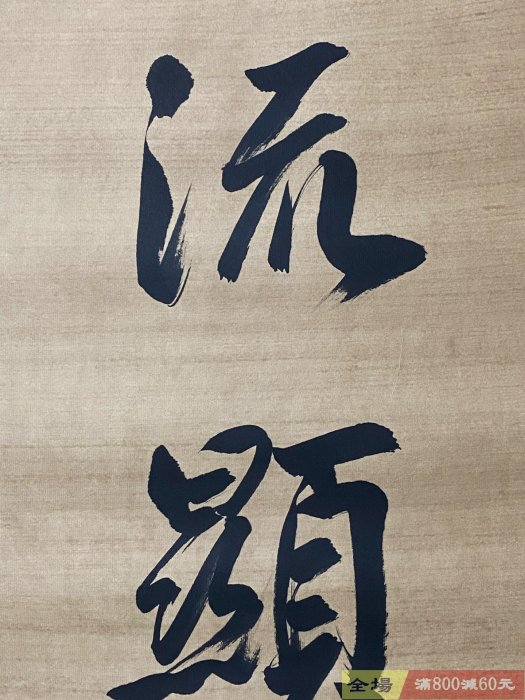 流
顯
全場 滿800減60元